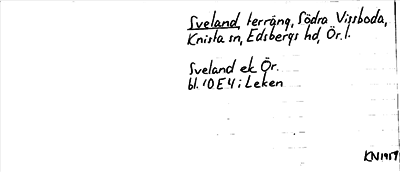 Sveland, terräng, Södra Vissboda,
Knista sn, Edsbergs hd, Ör. l.
Sveland ek Ör.
bl. 10E4i Leken
KN1957